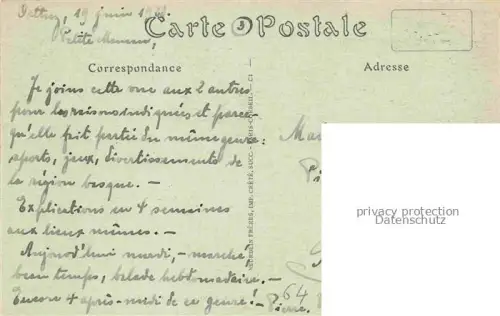 19 juin
Petite Maman,
Carte Postale
Correspondance
Adresse
Je joins cette vue aux 2 autres
pour les raisons indiquées et parce-
qu'elle fait partie du même genre:
sports, jeux, divertissements de
la région basque. —
Explications en 4 semaines
aux lieux mêmes. —
Aujourd'hui mardi, – marche,
beau temps, balade hebdomadaire. —
Encore 4 après-midi de ce genre! —
Pierre.
64
privacy protection
Datenschutz